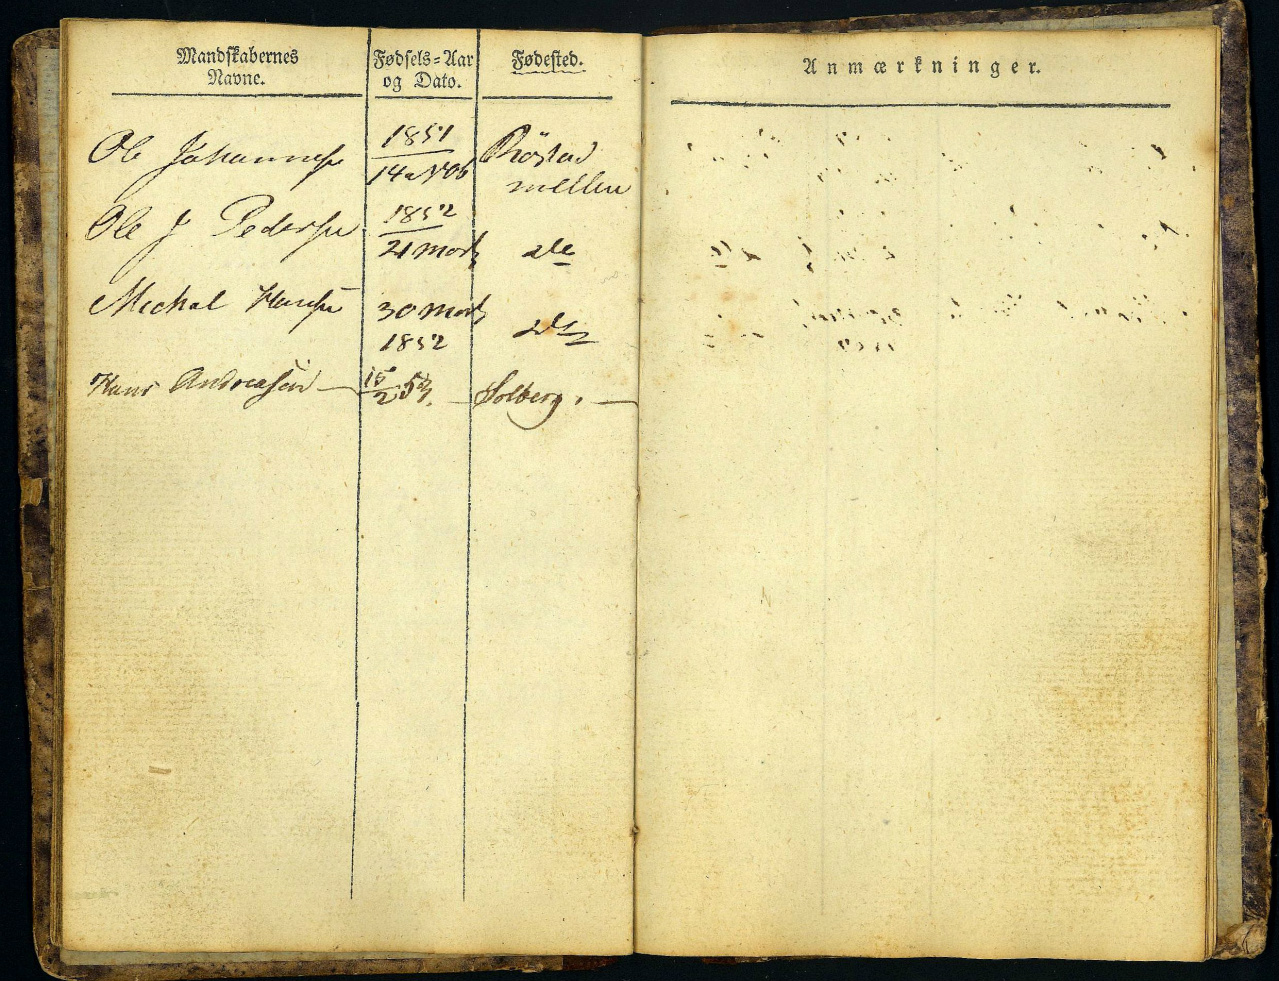 Mandskabernes
Navne.
Fødsels=Aar
og Dato.
Fødested.
Anmærkninger.
Ole Johannesen
1851
14 Novb
Röstad
mellem
Ole J Pedersen
1852
21 Marts
do
Mickal Hansen
30 Marts
1852
do
Hans Andreasen
15/2 53.
Solberg.